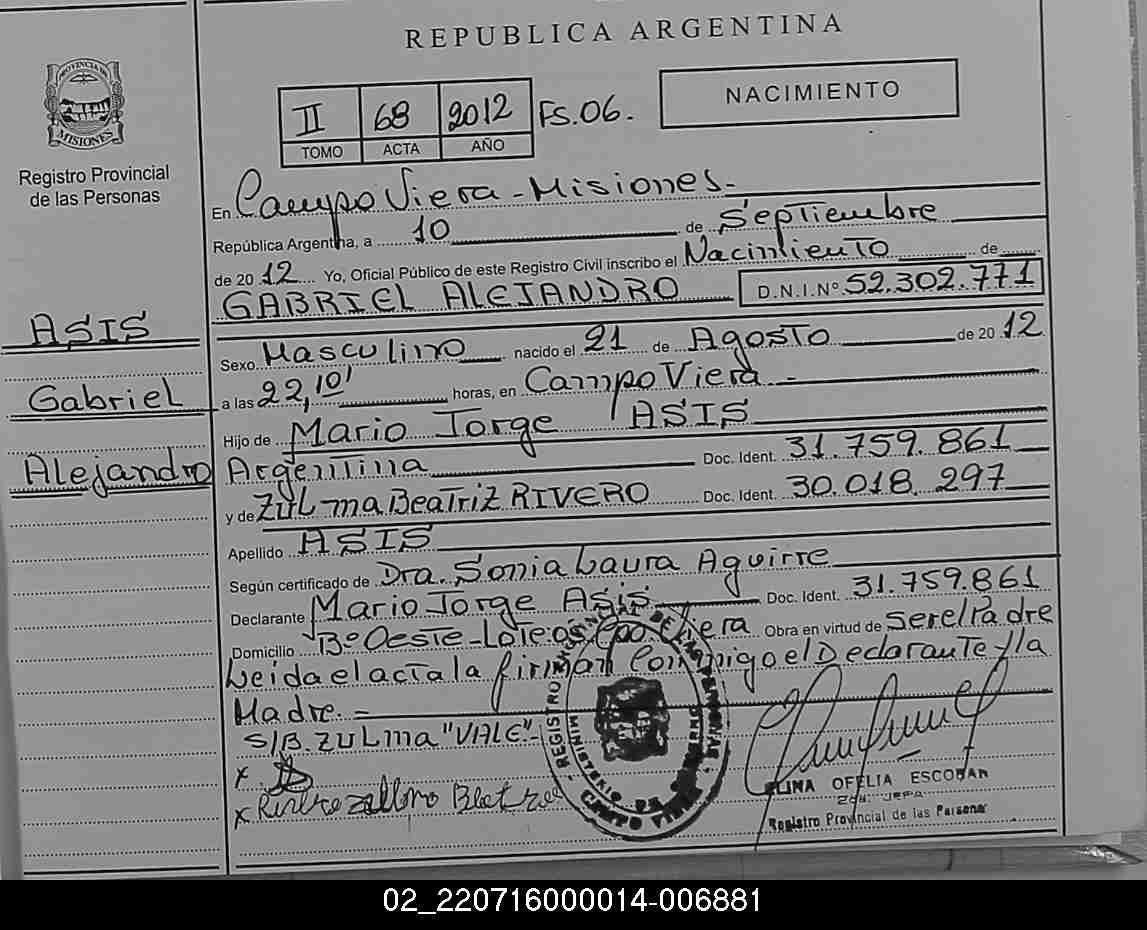 REPUBLICA ARGENTINA
PROVINCIA DE
MISIONES
Registro Provincial
de las Personas
II 68 2012 FS.06.
TOMO ACTA AÑO
NACIMIENTO
En Campo Viera - Misiones -
República Argentina, a 10 de Septiembre
de 2012 Yo, Oficial Público de este Registro Civil inscribo el Nacimiento de
GABRIEL ALEJANDRO D.N.I.Nº 52.302.771
ASIS
Sexo Masculino nacido el 21 de Agosto de 2012
Gabriel
a las 22,10' horas, en Campo Viera -
Hijo de Mario Jorge ASIS
Alejandro
Argentina Doc. Ident. 31.759.861
y de Zulma Beatriz RIVERO Doc. Ident. 30.018.297
Apellido ASIS
Según certificado de Dra. Sonia Laura Aguirre
Declarante Mario Jorge Asis Doc. Ident. 31.759.861
Domicilio Bº Oeste - Lote Cpo. Viera Obra en virtud de ser el Padre
Leida el acta la firman conmigo el Declarante y la
Madre. =
S/B. ZULMA "VALE" -
x
x
REGISTRO PROVINCIAL DE LAS PERSONAS
MINISTERIO DE GOBIERNO
CAMPO VIERA
ELINA OFELIA ESCOBAR
JEFA
Registro Provincial de las Personas
02_220716000014-006881